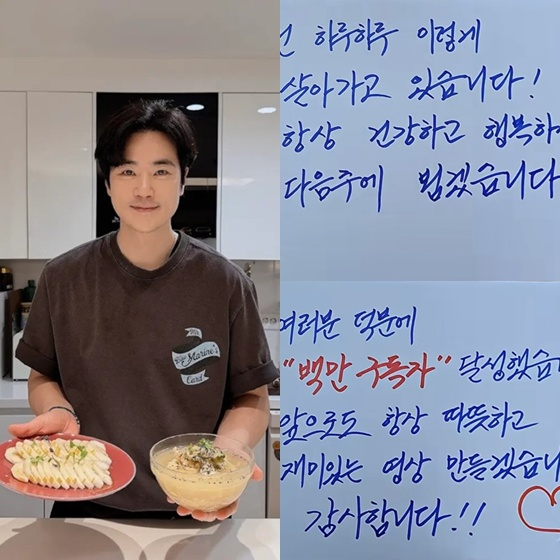 하루하루 이렇게
살아가고 있습니다!
항상 건강하고 행복하
다음주에 뵙겠습니다
여러분 덕분에
"백만 구독자" 달성했습
앞으로도 항상 따뜻하고
재미있는 영상 만들겠습니
감사합니다!!
The
Marine's
Card